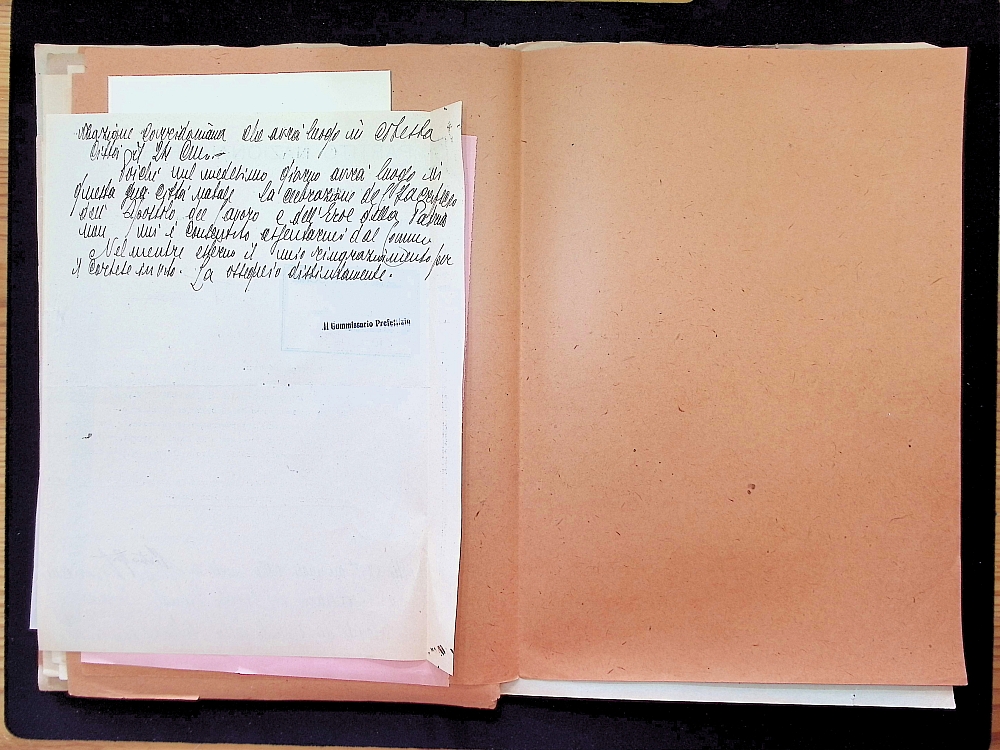 razione corridoniana che avrà luogo in cotesta
Città il 24 Corr.-
Poichè nel medesimo giorno avrà luogo in
questa sua città natale la celebrazione del Sacrificio
dell'Apostolo del lavoro e dell'Eroe della Patria
non mi è consentito assentarmi dal Comune
Nel mentre esterno il mio ringraziamento per
il cortese invito. La ossequio distintamente.
Il Commissario Prefettizio